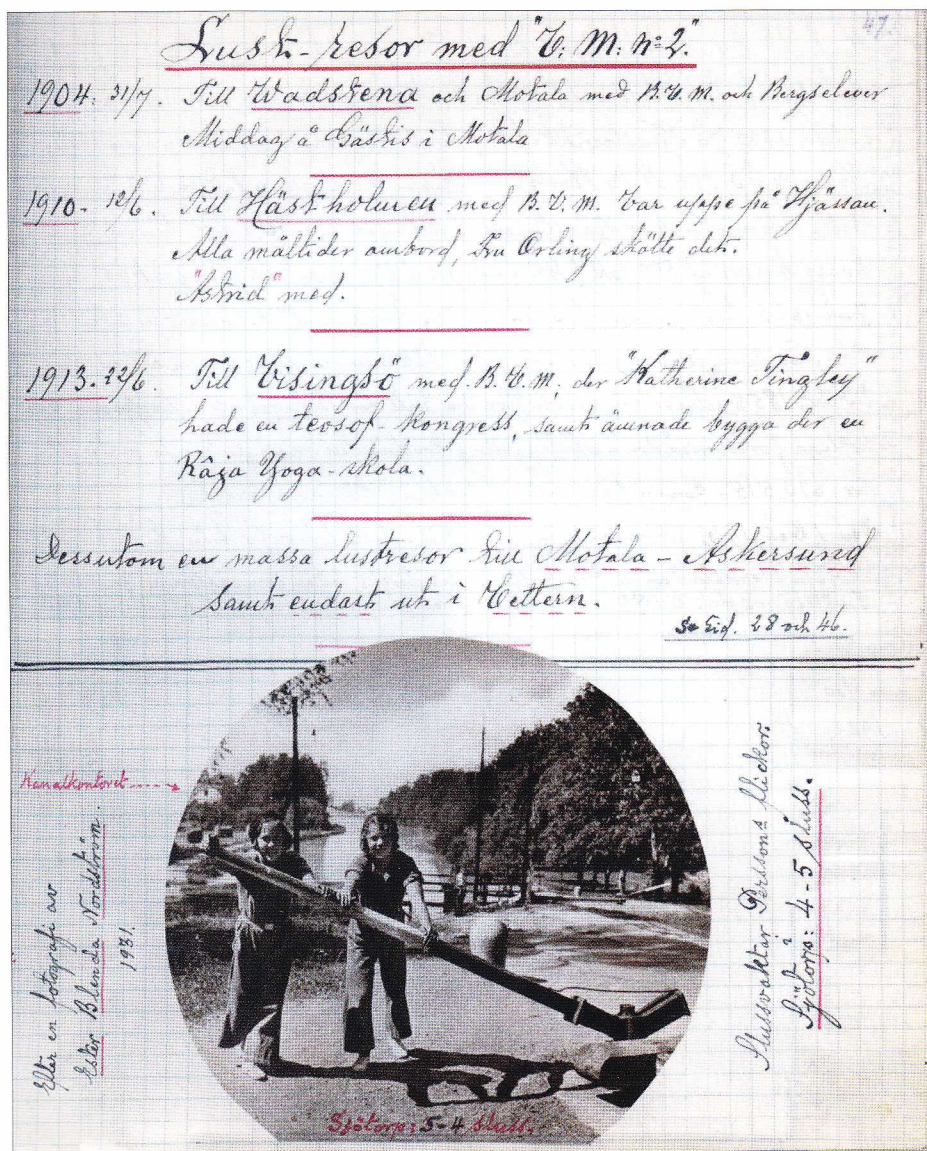 47.
Lust-resor med "V. M. nº 2."
1904. 31/7. Till Wadstena och Motala med B.V.M. och Bergselever
Middag å Gästis i Motala
1910 - 12/6. Till Hästholmen med B.V.M. Var uppe på Hjässan.
Alla måltider ombord, Fru Örling skötte det.
"Astrid" med.
1913. 22/6. Till Visingsö med B.V.M. der "Katherine Tingley"
hade en teosof-kongress, samt ämnade bygga der en
Râja Yoga-skola.
Dessutom en massa lustresor till Motala - Askersund
samt endast ut i Vettern.
Se sid. 28 och 46.
Kanalkontoret
Efter en fotografi av
Ester Blenda Nordström
1931.
Slussvaktar Perssons flickor:
i
Sjötorp: 4-5 sluss.
Sjötorp: 5-4 sluss.